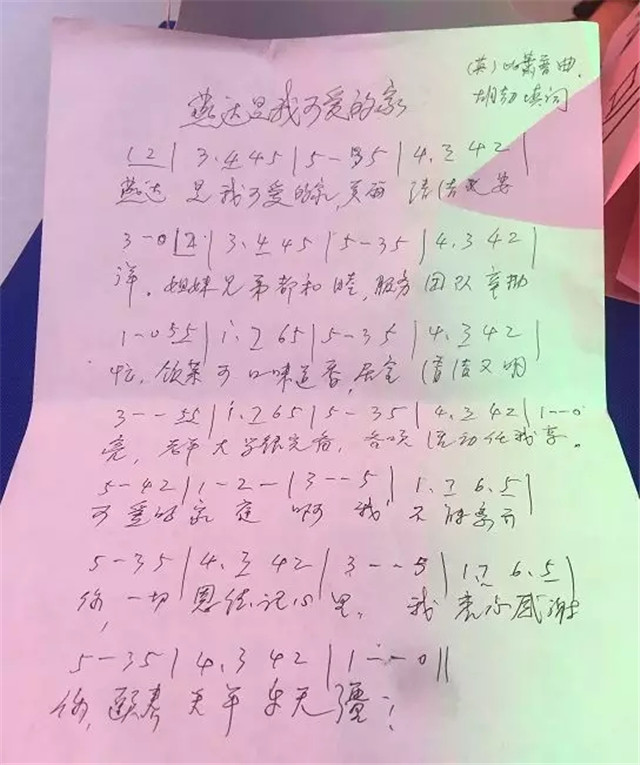 (英)比肖普曲.
燕达是我可爱的家
胡劲填词
1 2 | 3. 4 4 5 | 5 - 3 5 | 4. 3 4 2 |
燕达 是我可爱的家,美丽 清洁又安
3 - 0 1 2 | 3. 4 4 5 | 5 - 3 5 | 4. 3 4 2 |
详. 姐妹兄弟都和睦,服务团队辛勤
1 - 0 5 5 | 1. 7 6 5 | 5 - 3 5 | 4. 3 4 2 |
忙, 饭菜可口味道香,居室 清洁又明
3 - - 5 5 | 1. 7 6 5 | 5 - 3 5 | 4. 3 4 2 | 1 - - 0
亮, 老年大学很完备, 各项活动任我享。
5 - 4 2 | 1 - 2 - | 3 - - 5 | 1. 7 6. 5 |
可爱的家庭 啊 我 不能离开
5 - 3 5 | 4. 3 4 2 | 3 - - 5 | 1. 7 6. 5 |
你,一切恩德记心里, 我表示感谢
5 - 3 5 | 4. 3 4 2 | 1 - - 0 ||
你, 颐养天年乐无疆!